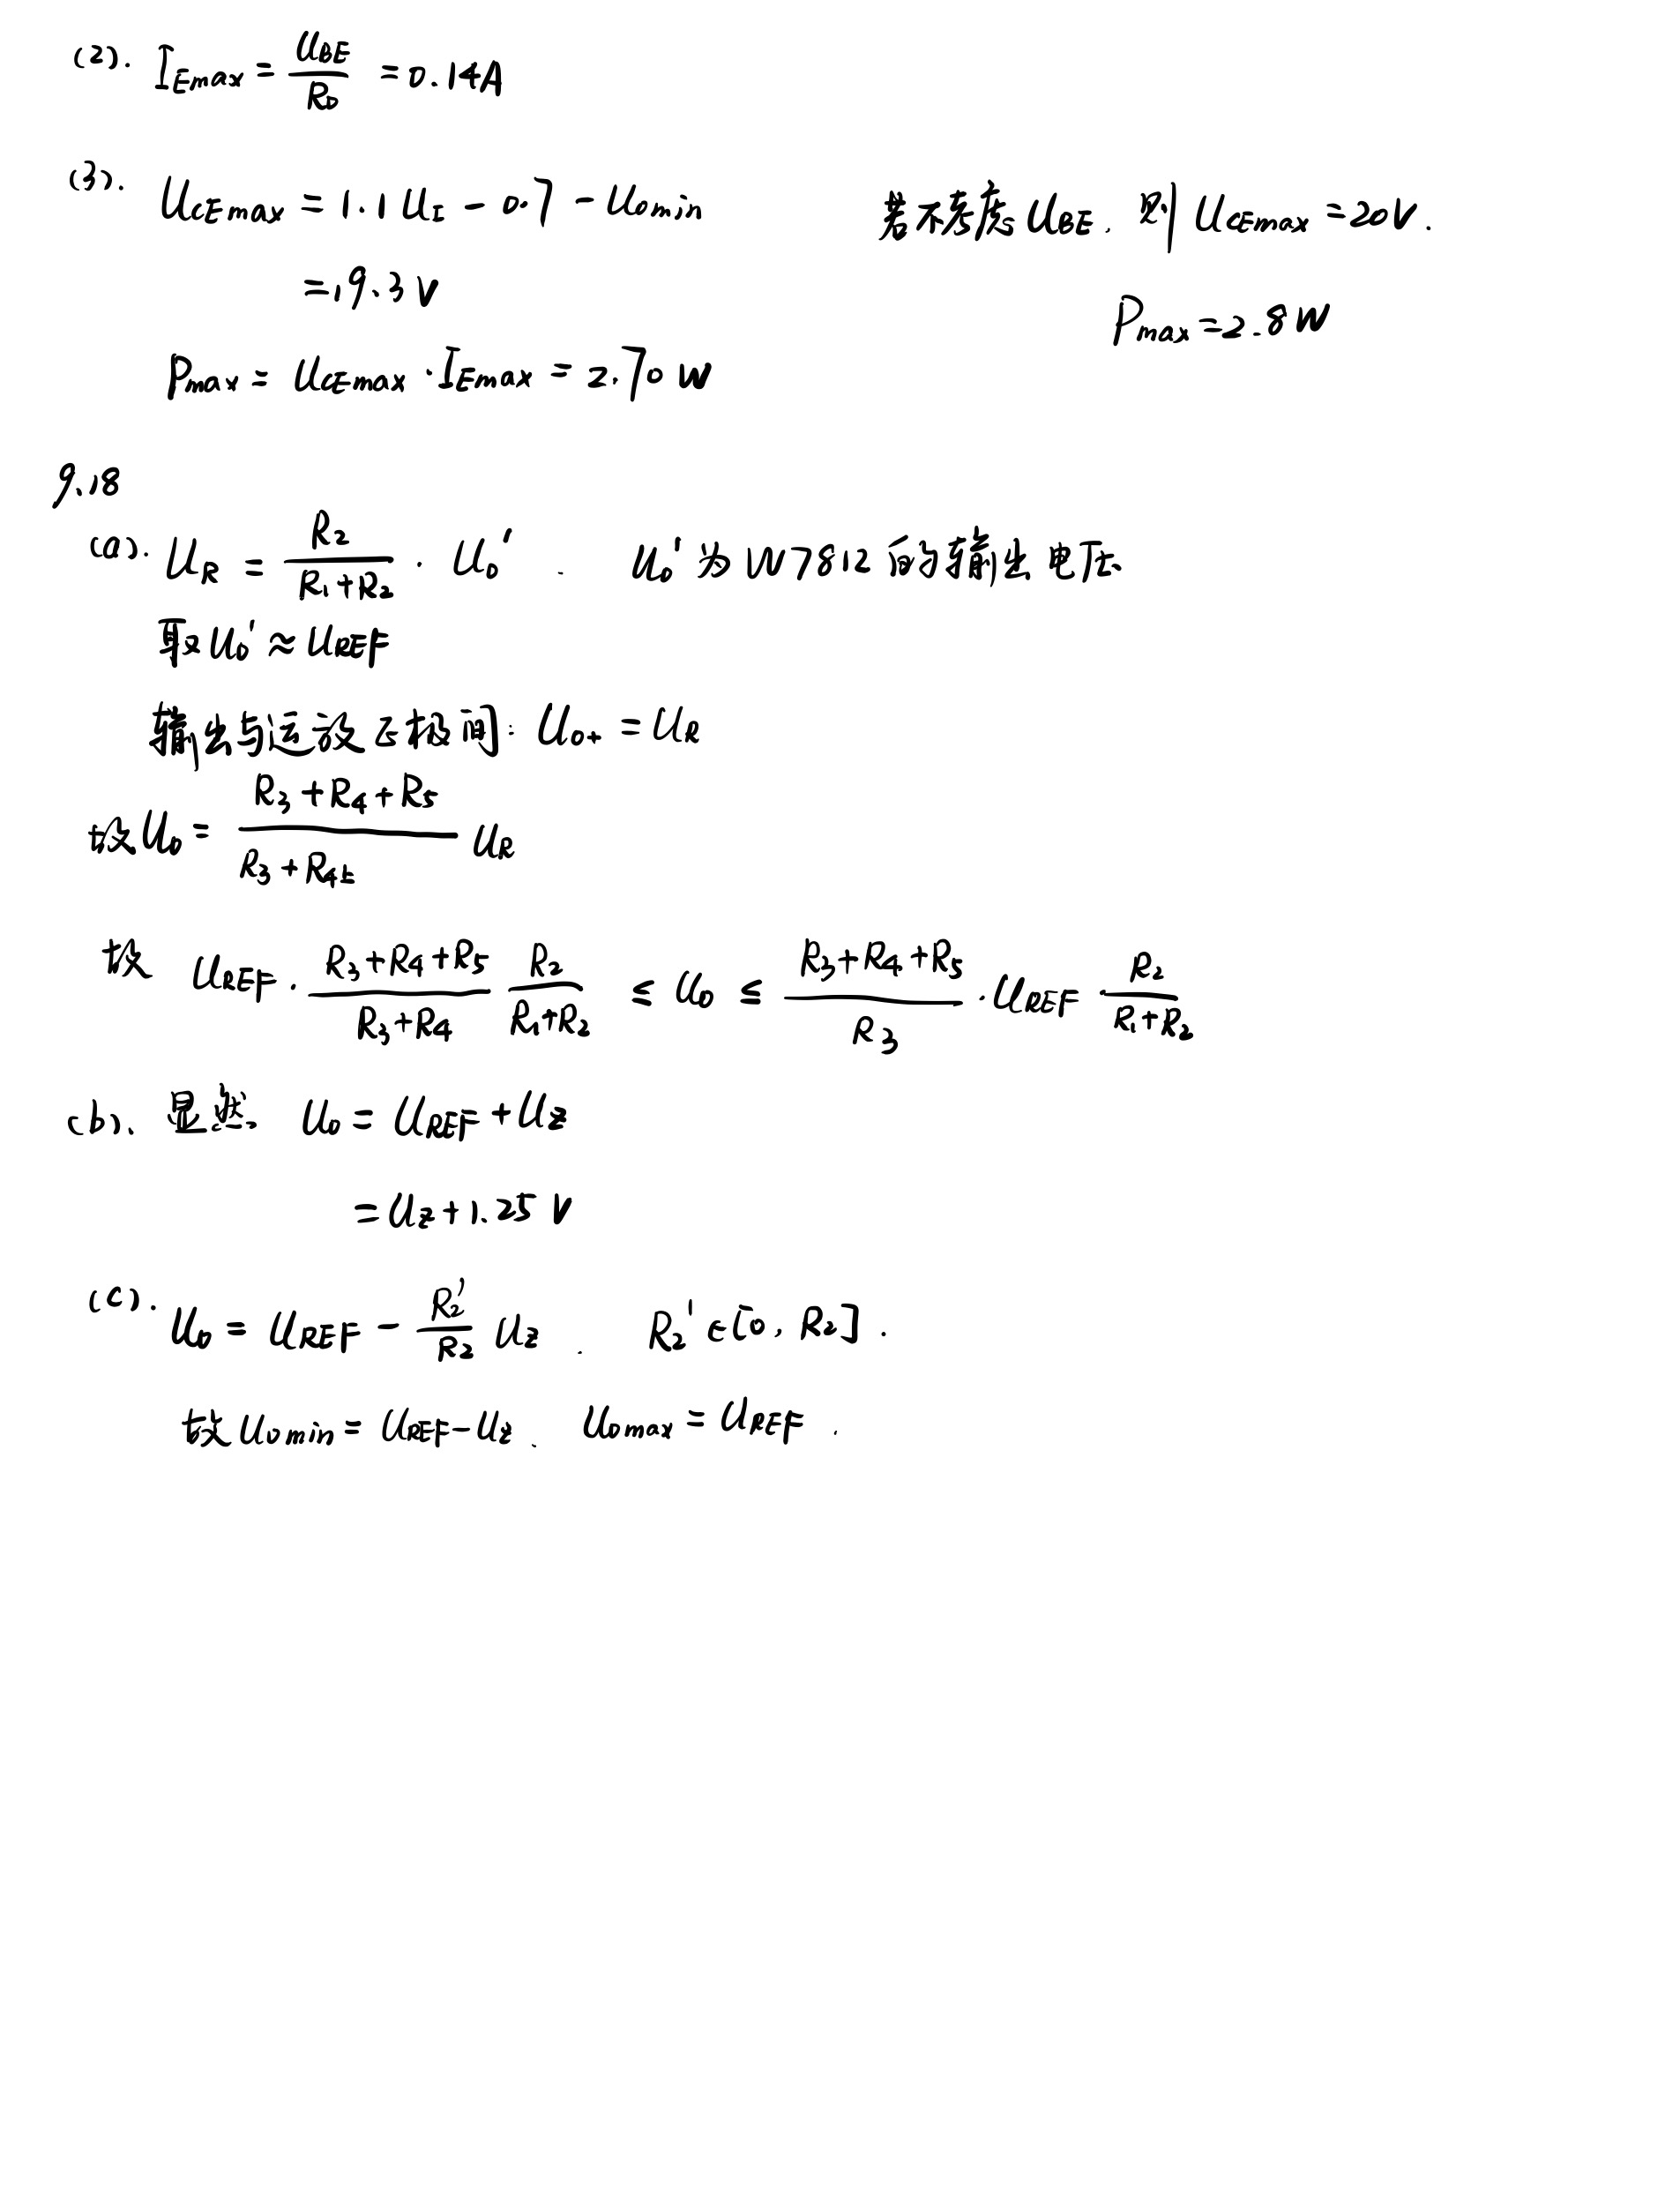 (2). I_Emax = U_BE / R_0 = 0.14A
(3). U_CEmax = 1.1 U_I - 0.7 - U_Omin
= 19.3 V
P_max = U_CEmax · I_Emax = 2.70 W
若不考虑 U_BE, 则 U_CEmax = 20V.
P_max = 2.8 W
9.18
(a). U_R = R_2 / (R_1+R_2) · U_O' . U_O' 为 W7812 的输出电压
取 U_O' ≈ U_REF
输出与运放正极间: U_O+ = U_R
故 U_O = (R_3+R_4+R_5) / (R_3+R_4上) U_R
故 U_REF · (R_3+R_4+R_5) / (R_3+R_4) R_2 / (R_1+R_2) ≤ U_O ≤ (R_3+R_4+R_5) / R_3 · U_REF · R_2 / (R_1+R_2)
(b). 显然 U_O = U_REF + U_Z
= U_Z + 1.25 V
(c). U_O = U_REF - R_2' / R_2 U_Z . R_2' ∈ [0, R_2] .
故 U_Omin = U_REF - U_Z . U_Omax = U_REF .